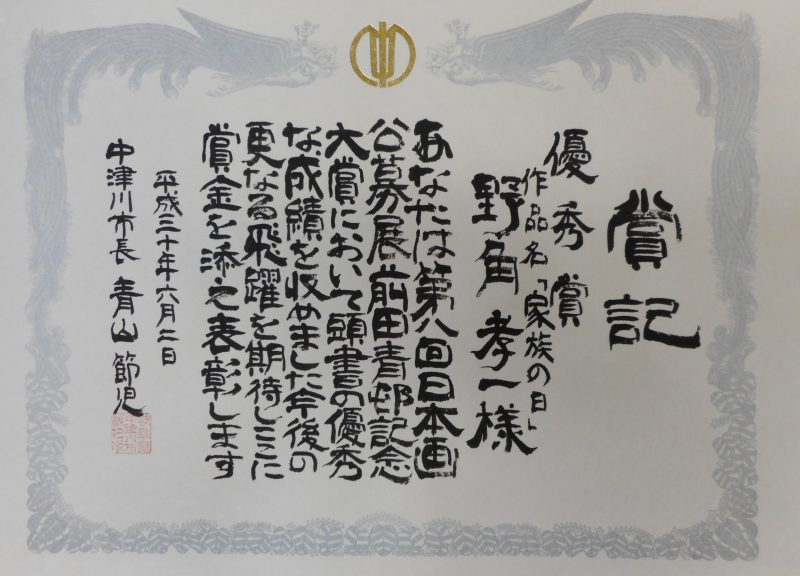 賞記
優秀賞
作品名「家族の日」
野角孝一様
あなたは第八回日本画
公募展前田青邨記念
大賞において頭書の優秀
な成績を収めました今後の
更なる飛躍を期待しここに
賞金を添え表彰します
平成三十年六月二日
中津川市長 青山節児